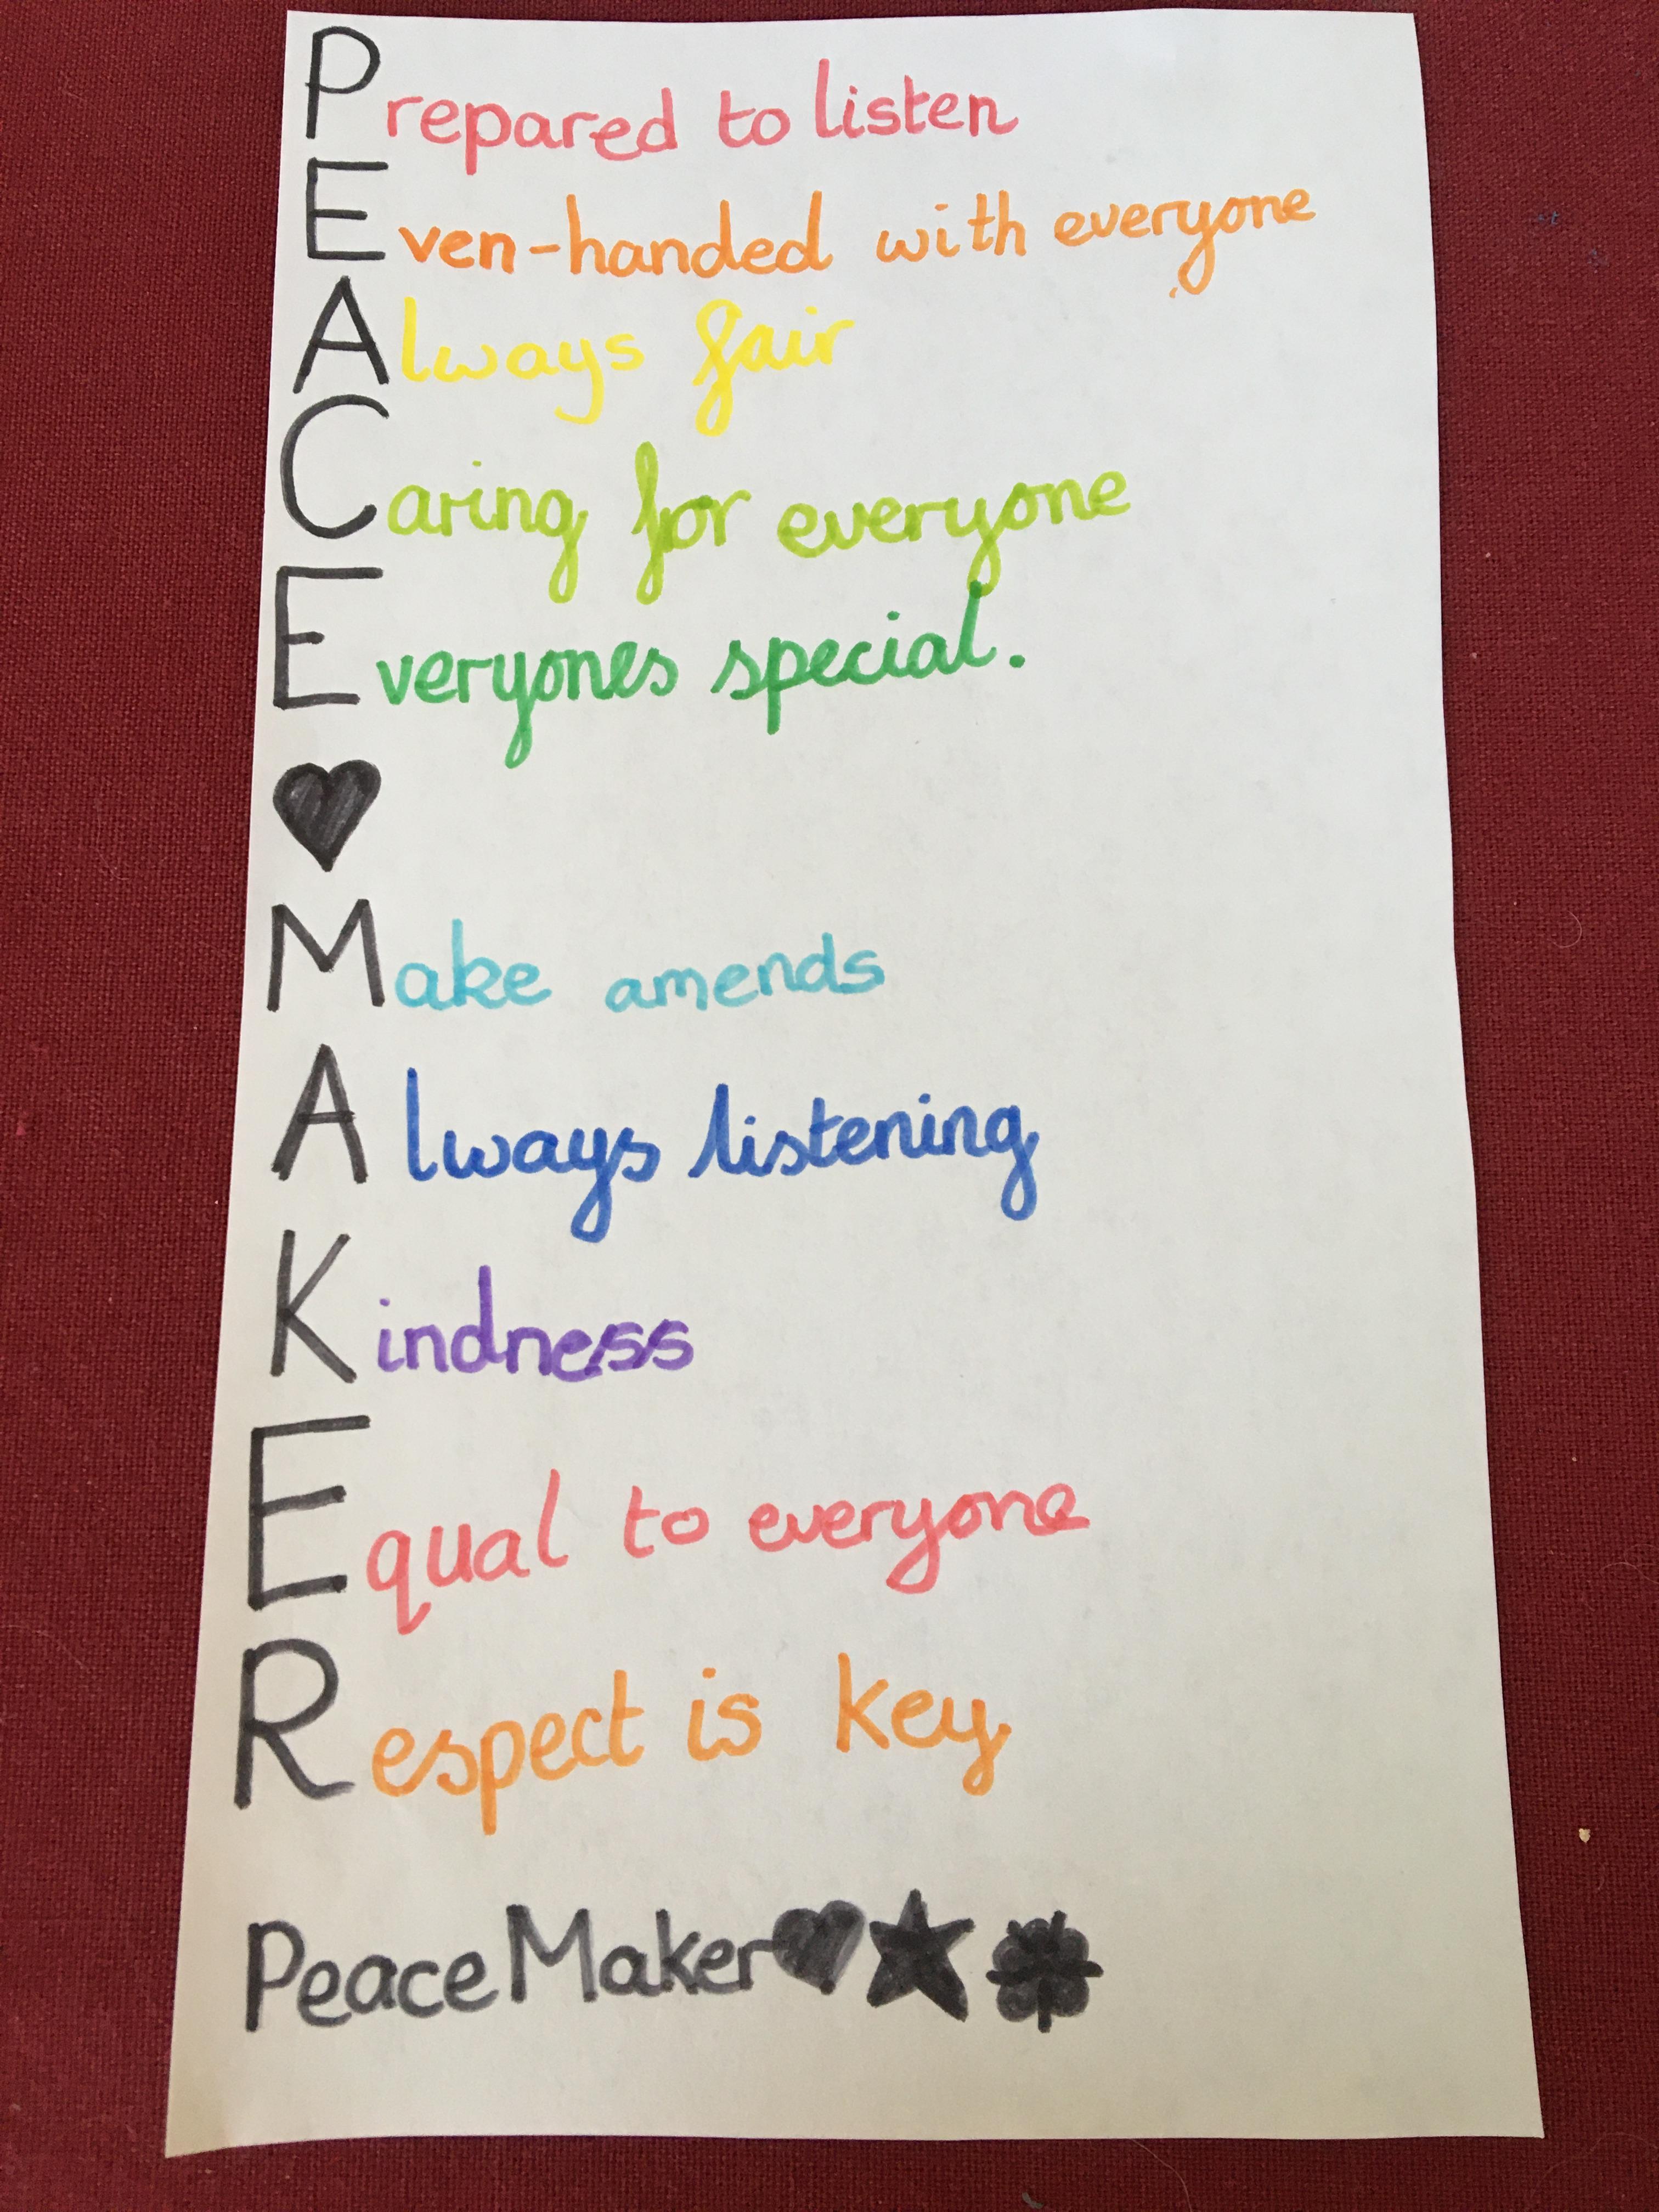 Prepared to listen
Even-handed with everyone
Always fair
Caring for everyone
Everyones special.
Make amends
Always listening
Kindness
Equal to everyone
Respect is key
Peace Maker